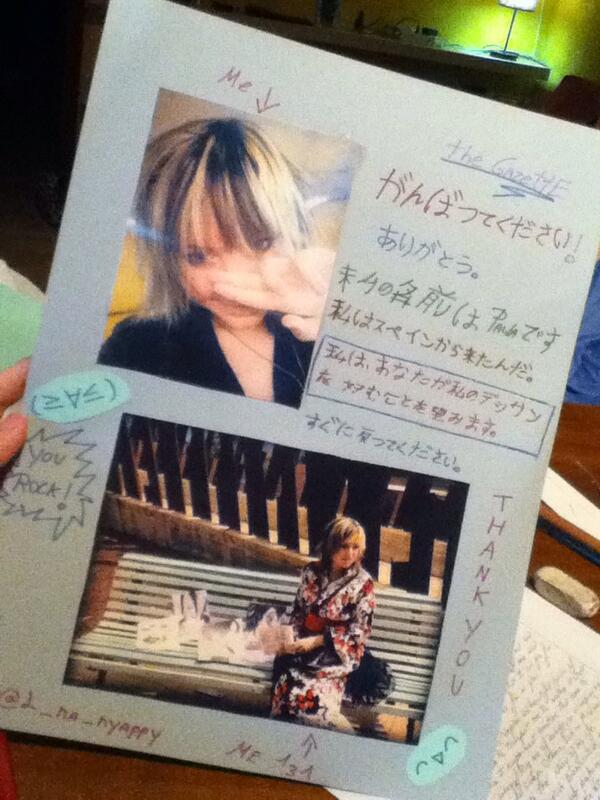 Me
the GazettE
がんばつてください!
ありがとう。
の名前は です
私はスペインから来たんだ。
私は、あなたが私のデッサン
を 好むことを望みます。
すぐに ってください。
(≧Д≦)
YOU
ROCK!
THANK YOU
ME